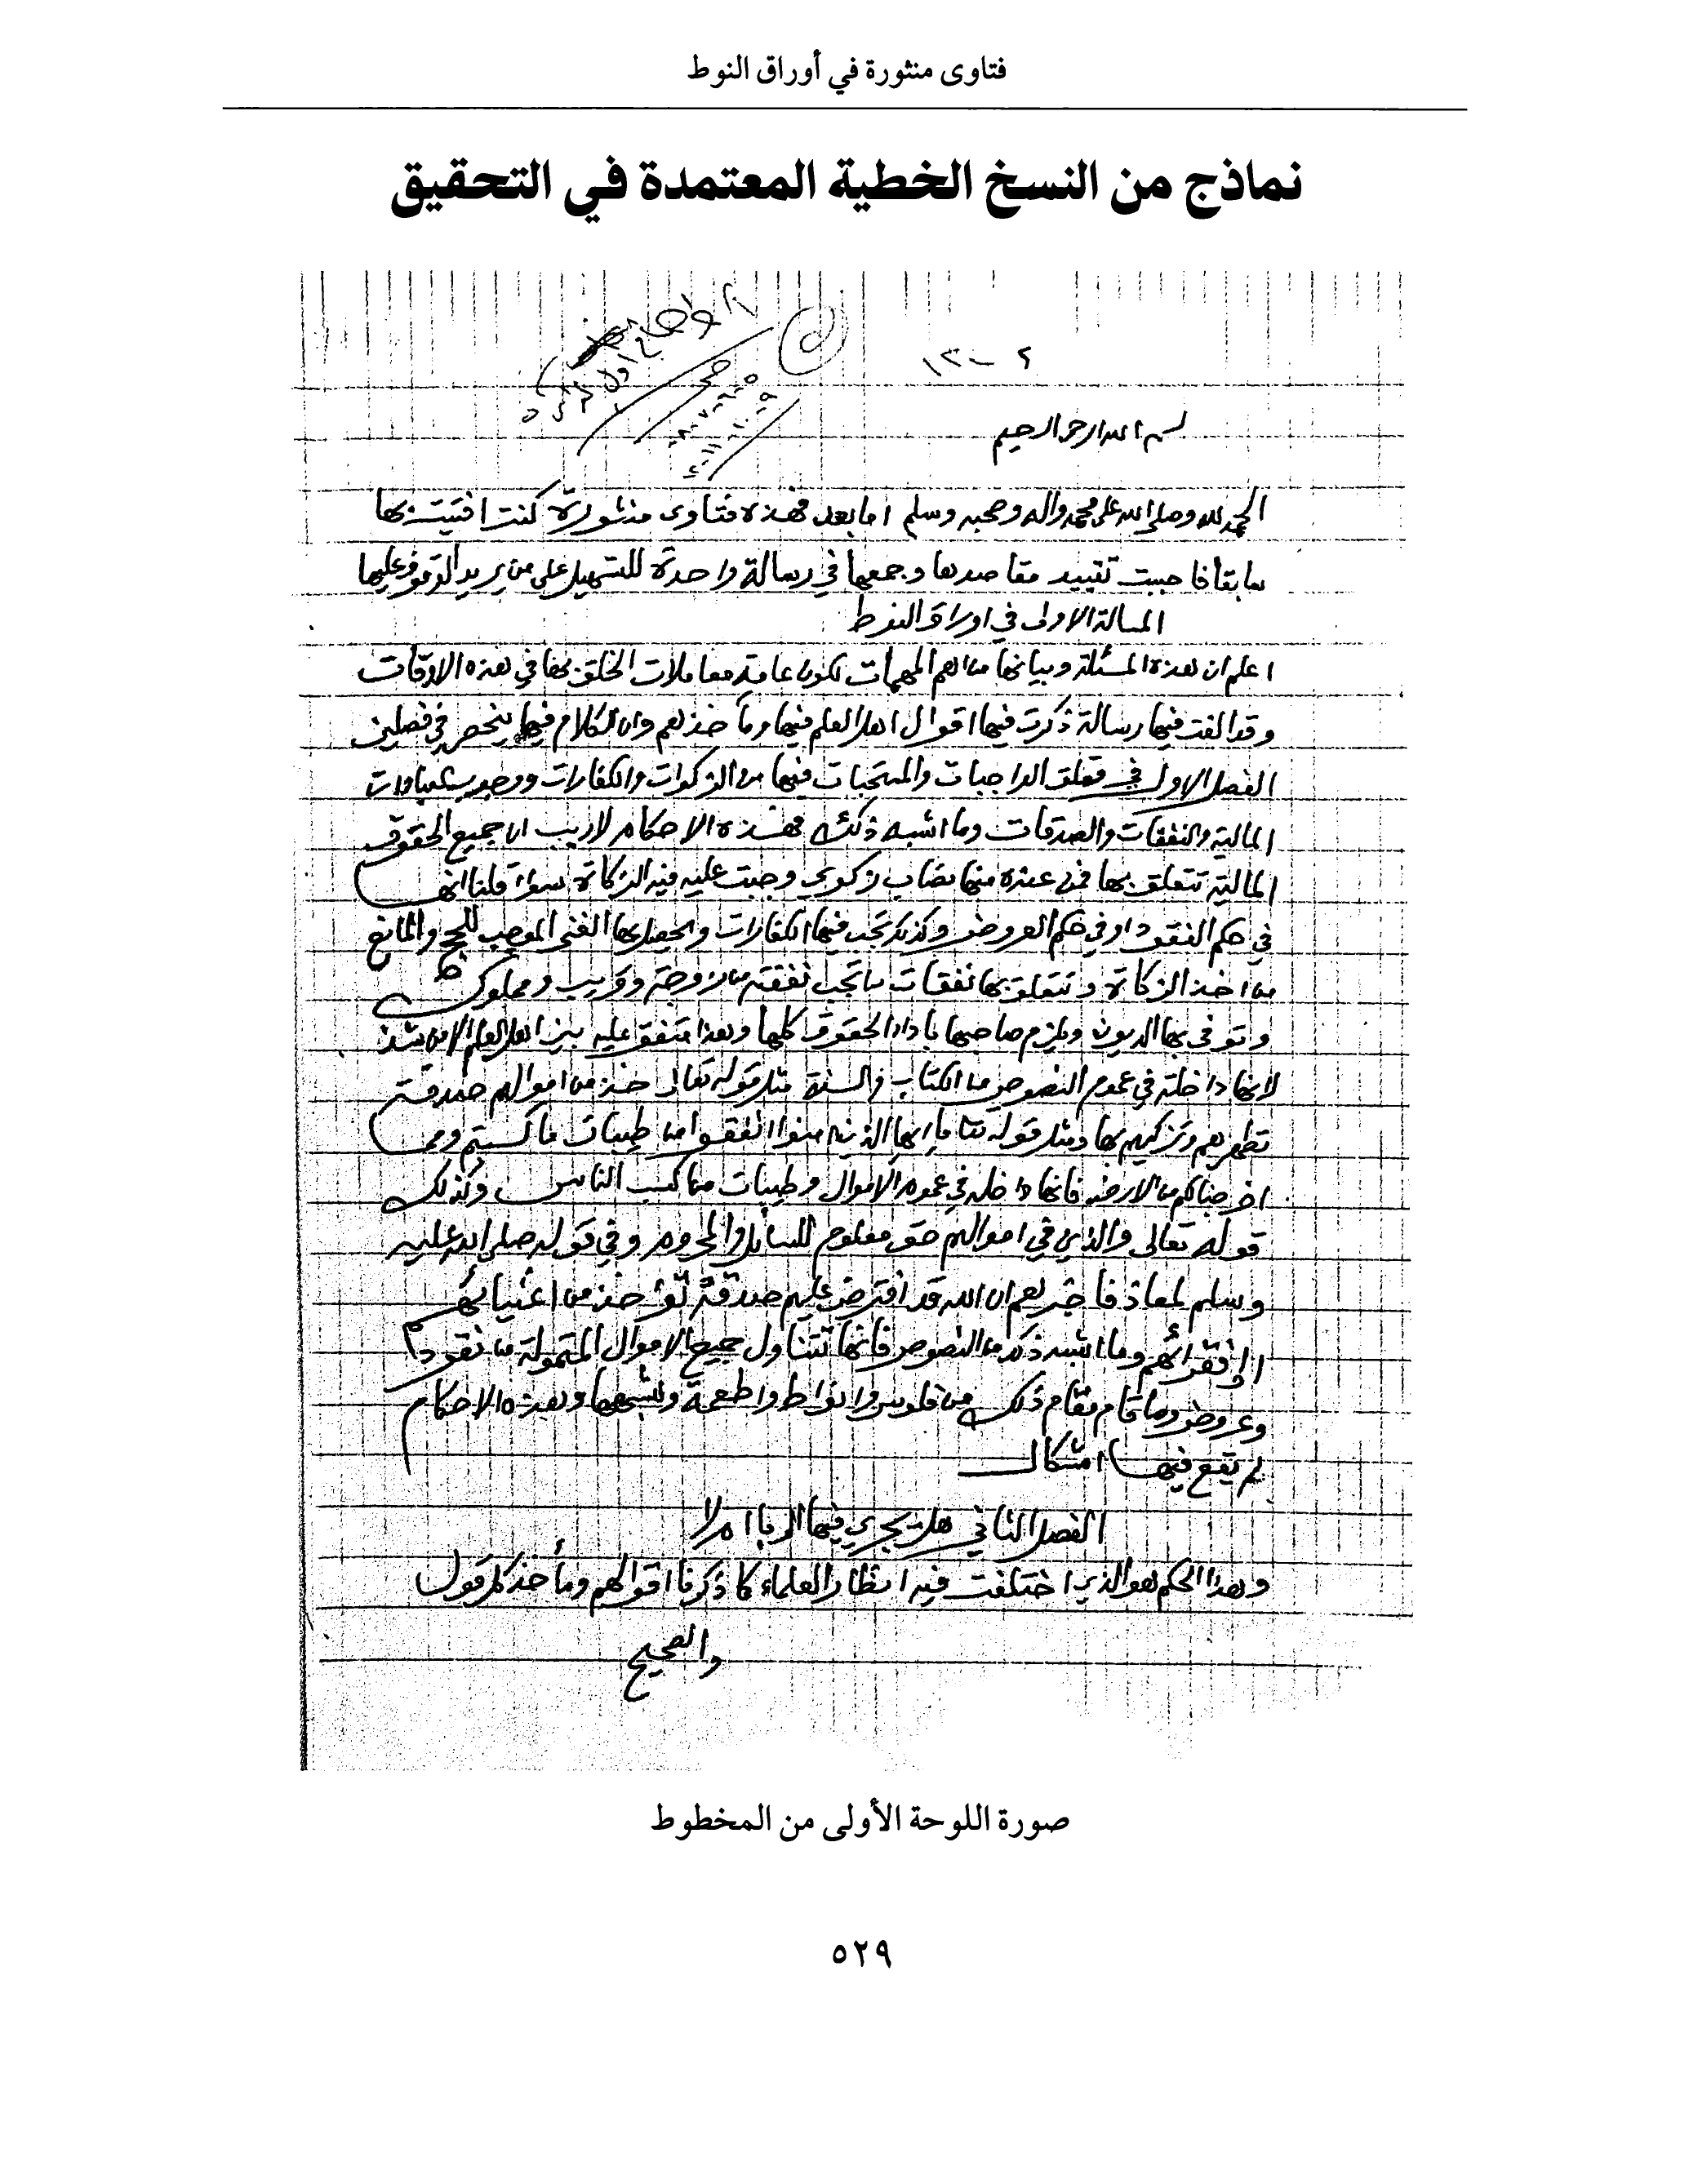 فتاوى منثورة في أوراق النوط
نماذج من النسخ الخطية المعتمدة في التحقيق
٢ - ١٣
بسم الله الرحمن الرحيم
الحمد لله وصلى الله على محمد واله وصحبه وسلم اما بعد فهذه فتاوى منثورة كنت افتيت بها
سابقا فاحببت تقييد مقاصدها وجمعها في رسالة واحدة للتسهيل على من يريد الوقوف عليها
المسالة الاولى في اوراق النوط
اعلم ان هذه المسئلة وبيانها من اهم المهمات لكون عامة معاملات الخلق بها في هذه الاوقات
وقد الفت فيها رسالة ذكرت فيها اقوال اهل العلم فيها ومآخذهم وان الكلام فيها ينحصر في فصلين
الفصل الاول في تعلق الواجبات والمستحبات فيها من الزكوات والكفارات ووجوب العبادات
المالية والنفقات والصدقات وما اشبه ذلك فهذه الاحكام لا ريب ان جميع الحقوق
المالية تتعلق بها فمن عنده منها نصاب زكوي وجبت عليه فيه الزكاة سواء قلنا انها
في حكم النقود او في حكم العروض وكذلك تجب فيها الكفارات ويحصل بها الغنى الموجب للحج والمانع
من اخذ الزكاة وتتعلق بها نفقات من تجب نفقته من زوجة وقريب ومملوك
وتوفى بها الديون ويلزم صاحبها باداء الحقوق كلها وهذا متفق عليه بين اهل العلم الا من شذ
لانها داخلة في عموم النصوص من الكتاب والسنة مثل قوله تعالى خذ من اموالهم صدقة
تطهرهم وتزكيهم بها ومثل قوله تعا يا ايها الذين امنوا انفقوا من طيبات ما كسبتم ومما
اخرجنا لكم من الارض فانها داخله في عموم الاموال وطيبات مكاسب الناس وكذلك
قوله تعالى والذين في اموالهم حق معلوم للسائل والمحروم وفي قوله صلى الله عليه
وسلم لمعاذ فاخبرهم ان الله قد افترض عليهم صدقة تؤخذ من اغنيائهم
الى فقرائهم وما اشبه ذلك من النصوص فانها تتناول جميع الاموال المتمولة من نقود
وعروض وما قام مقام ذلك من فلوس وانواط واطعمة وشبهها وهذه الاحكام
لم يقع فيها اشكال
الفصل الثاني هل يجري فيها الربا ام لا
وهذا الحكم هو الذي اختلفت فيه انظار العلماء كما ذكرنا اقوالهم ومأخذ كل قول
والصحيح
صورة اللوحة الأولى من المخطوط
٥٢٩